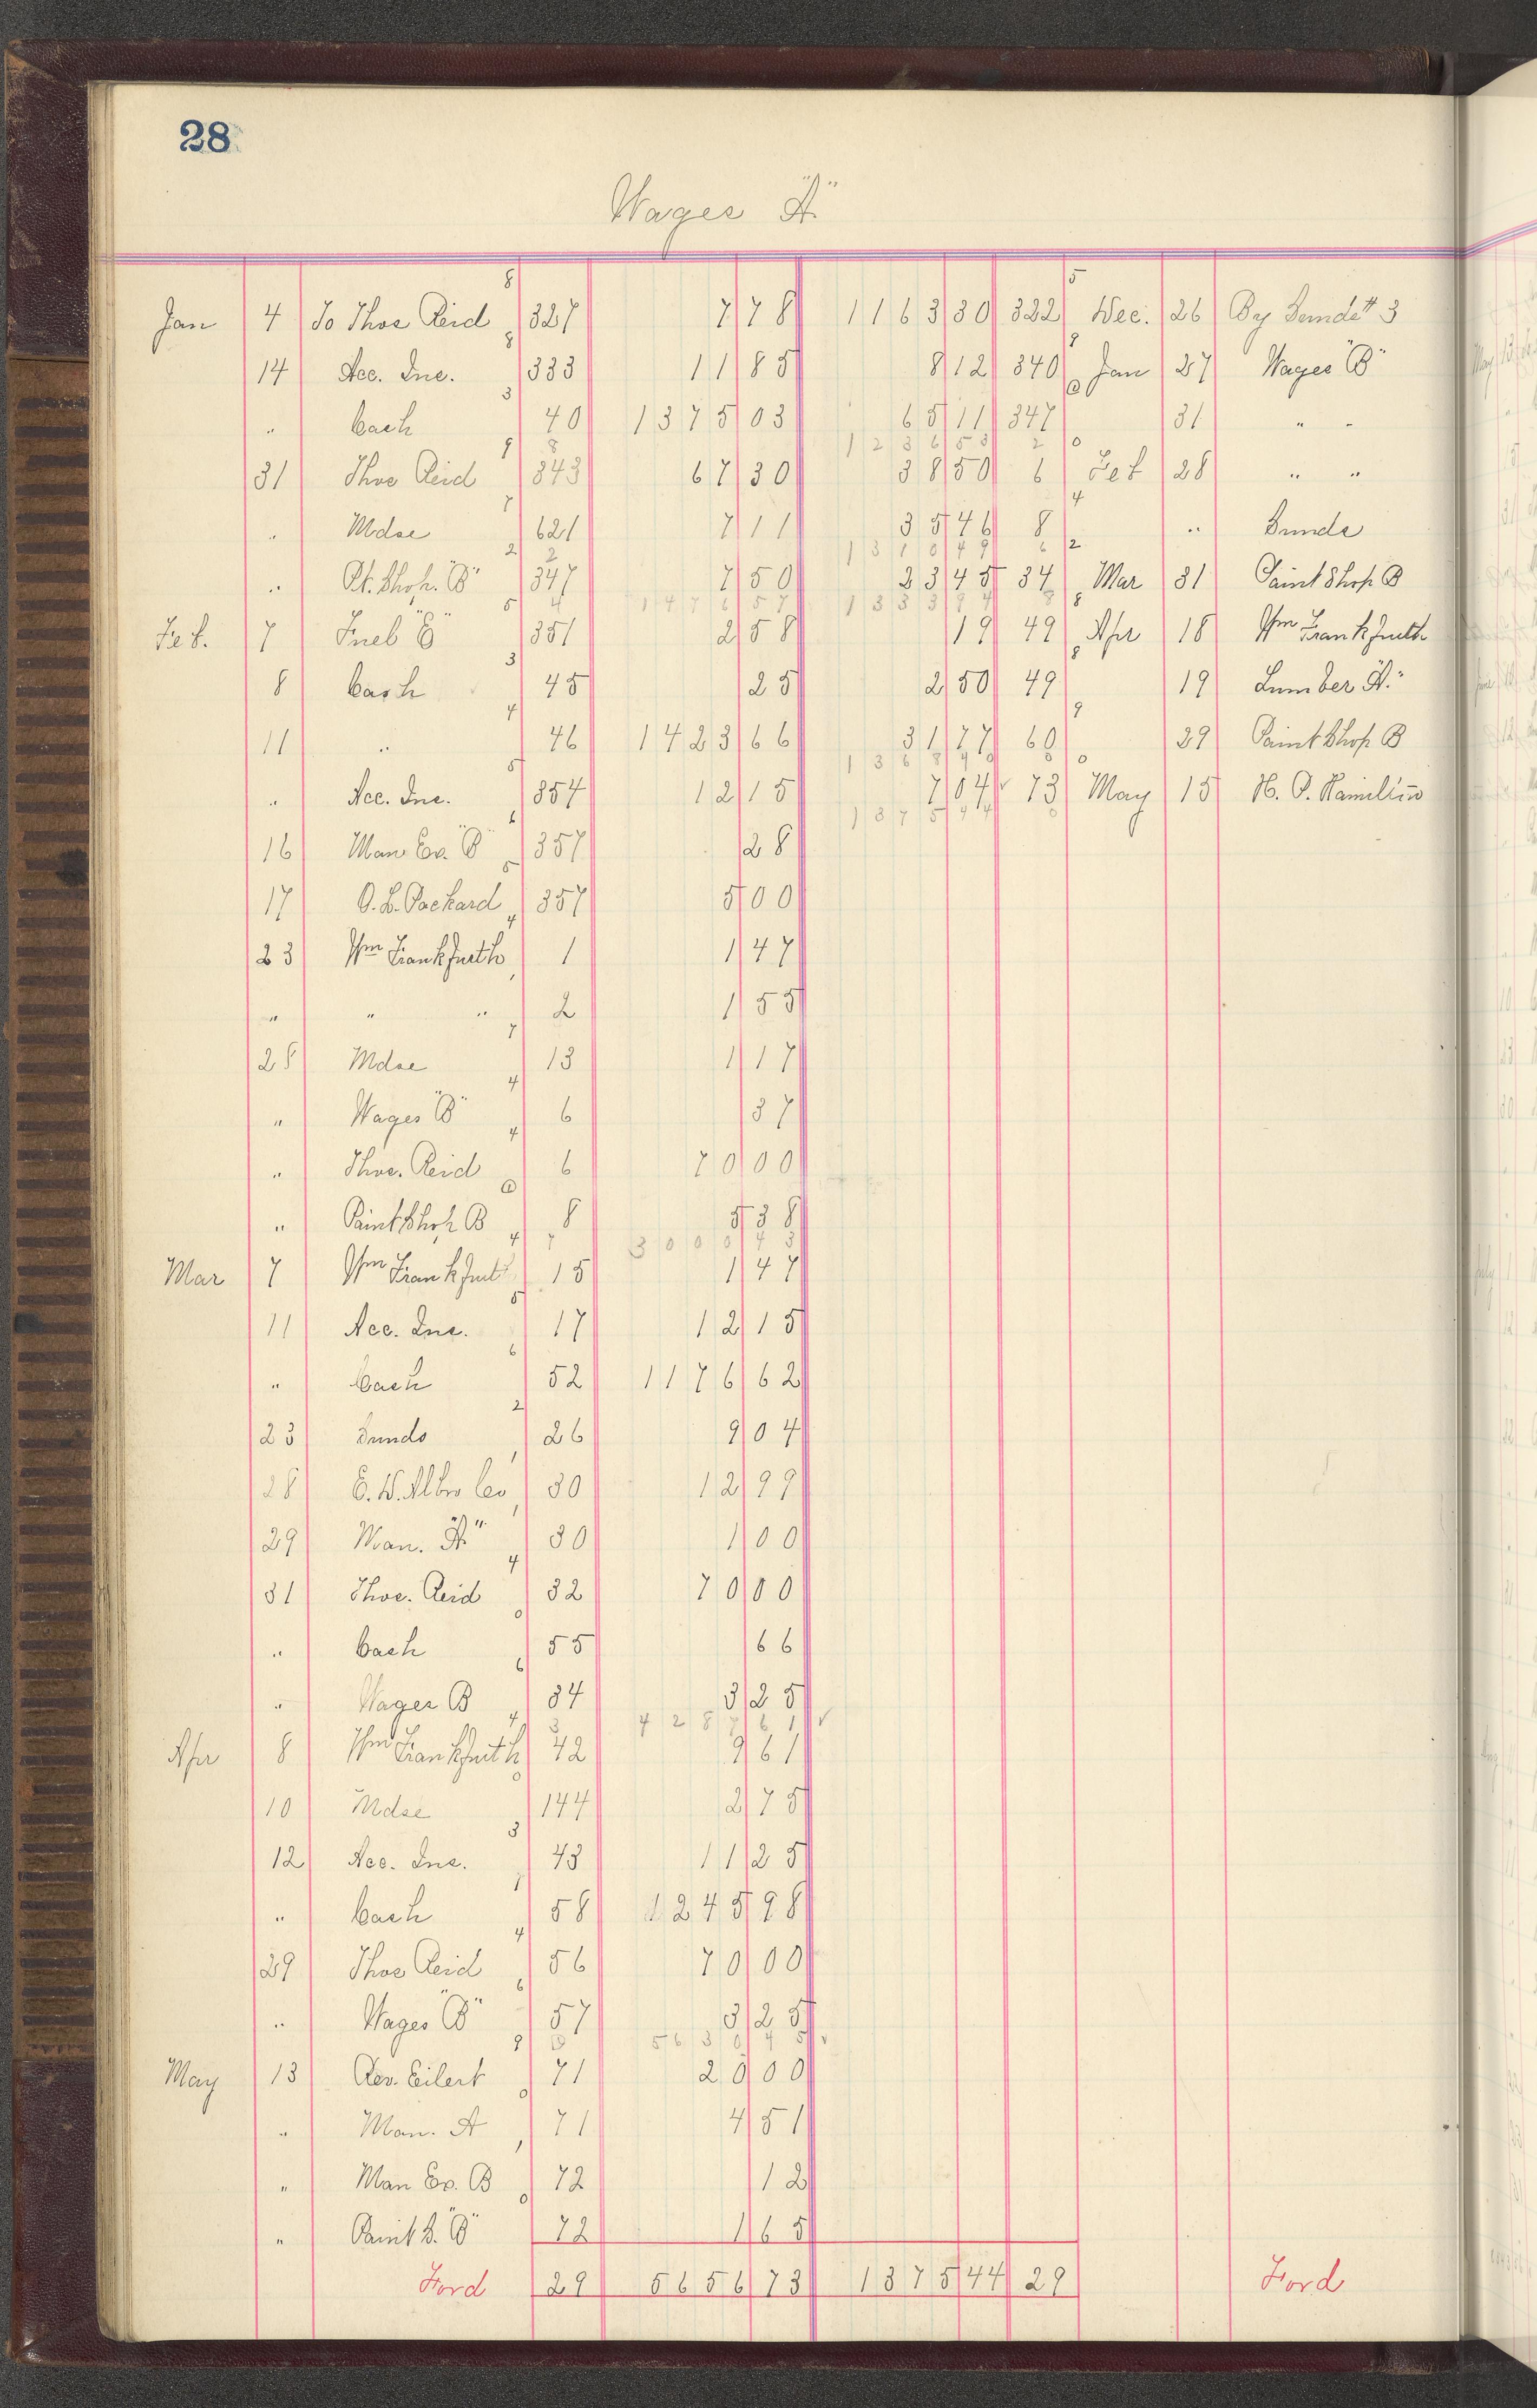 28
Wages "A"
Jan 4 To Thos Reid 327 7 78 1163 30 322 Dec. 26 By Sunds # 3
14 Acc. Ins. 333 11 85 8 12 340 Jan 27 Wages "B"
" Cash 40 1375 03 65 11 347 31 " "
1236 53
31 Thos Reid 343 67 30 38 50 6 Feb 28 " "
" Mdse 621 7 11 35 46 8 " Sunds
1310 49
" Pt. Shop. "B" 347 7 50 23 45 34 Mar 31 Paint Shop B
1476 57 1333 94
Feb. 7 Fuel "B" 351 2 58 19 49 Apr 18 Wm Frankfurth
8 Cash 45 25 2 50 49 19 Lumber "A"
11 " 46 1423 66 31 77 60 29 Paint Shop B
1368 40
" Acc. Ins. 354 12 15 7 04 73 May 15 H. P.
1375 44
16 Man Ex. "B" 357 28
17 O. L. Packard 357 5 00
23 Wm Frankfurth 1 1 47
" " " 2 1 55
28 Mdse 13 1 17
" Wages "B" 6 37
" Thos. Reid 6 70 00
" Paint Shop B 8 5 38
3000 43
Mar 7 Wm Frankfurt 15 1 47
11 Acc. Ins. 17 12 15
" Cash 52 1176 62
23 Sunds 26 9 04
28 E. D. Albro Co 30 12 99
29 Man. "A" 30 1 00
31 Thos. Reid 32 70 00
" Cash 55 66
" Wages B 34 3 25
4287 61
Apr 8 Wm Frankfurth 42 9 61
10 Mdse 144 2 75
12 Acc. Ins. 43 11 25
" Cash 58 1245 98
29 Thos Reid 56 70 00
" Wages "B" 57 3 25
5630 45
May 13 Rev. Eilert 71 20 00
" Man. A 71 4 51
" Man Ex. B 72 12
" Paint S. "B" 72 1 65
Ford 29 5656 73 1375 44 29 Ford